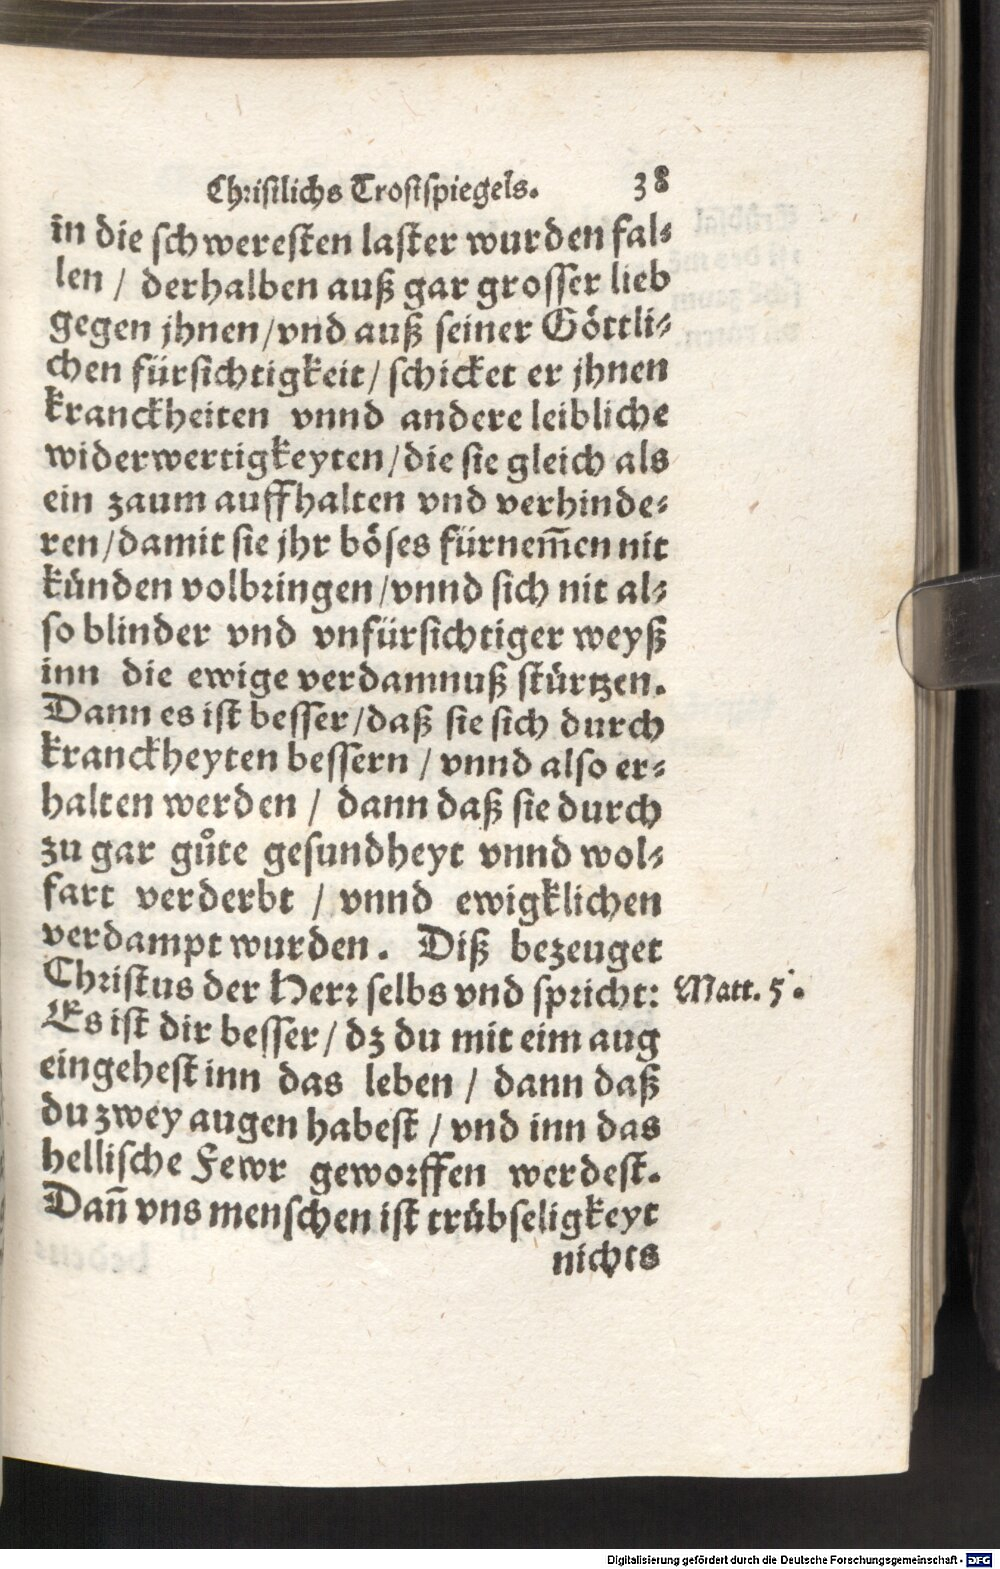 Christlichs Trostspiegels. 38
in die schweresten laster wurden fal⸗
len / derhalben auß gar grosser lieb
gegen jhnen/vnd auß seiner Göttli⸗
chen fürsichtigkeit/ schicket er jhnen
kranckheiten vnnd andere leibliche
widerwertigkeyten/die sie gleich als
ein zaum auffhalten vnd verhinde⸗
ren/damit sie jhr böses fürnem̄en nit
künden volbringen/vnnd sich nit al⸗
so blinder vnd vnfürsichtiger weyß
inn die ewige verdamnuß stürtzen.
Dann es ist besser/daß sie sich durch
kranckheyten bessern / vnnd also er⸗
halten werden / dann daß sie durch
zu gar gůte gesundheyt vnnd wol⸗
fart verderbt / vnnd ewigklichen
verdampt wurden. Diß bezeuget
Christus der Herr selbs vnd spricht: Matt. 5.
Es ist dir besser/ dz du mit eim aug
eingehest inn das leben / dann daß
du zwey augen habest / vnd inn das
hellische Fewr geworffen werdest.
Dan̄ vns menschen ist trübseligkeyt
nichts
Digitalisierung gefördert durch die Deutsche Forschungsgemeinschaft - DFG